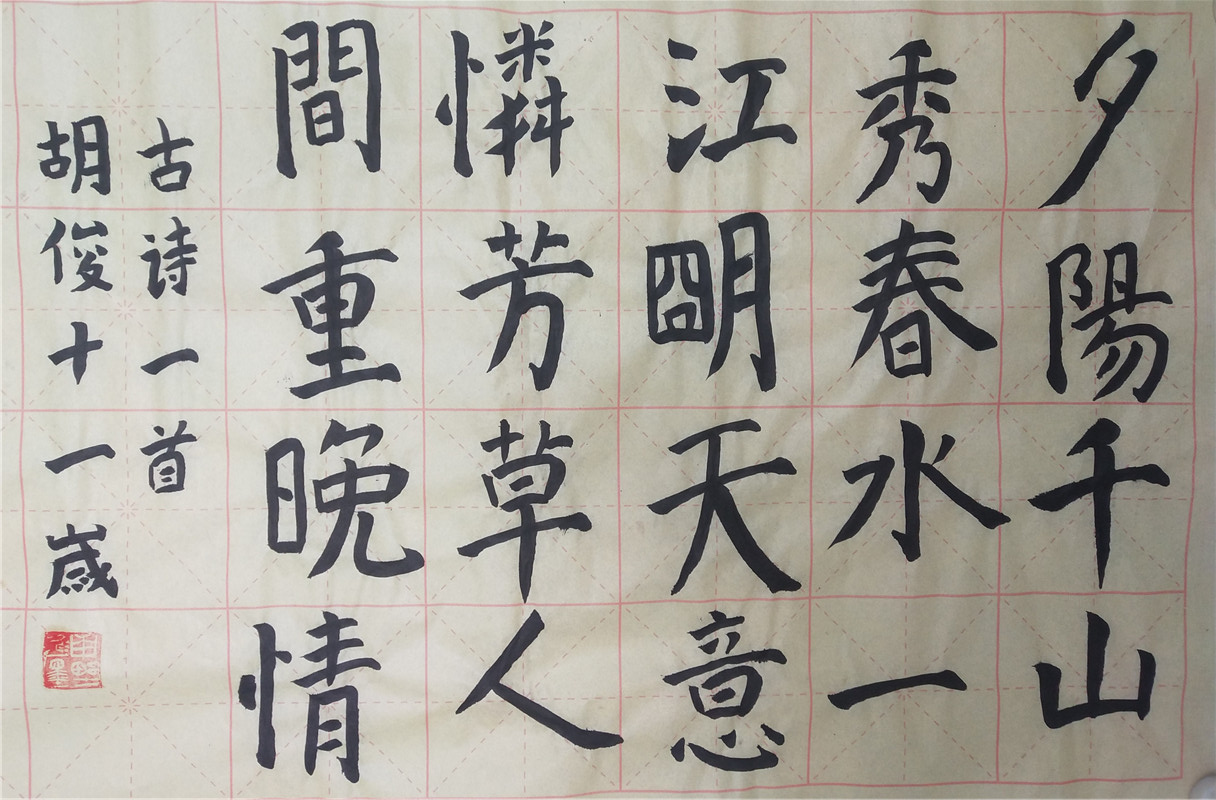 夕陽千山
秀春水一
江朙天意
憐芳草人
間重晚情
古诗一首
胡俊十一歲